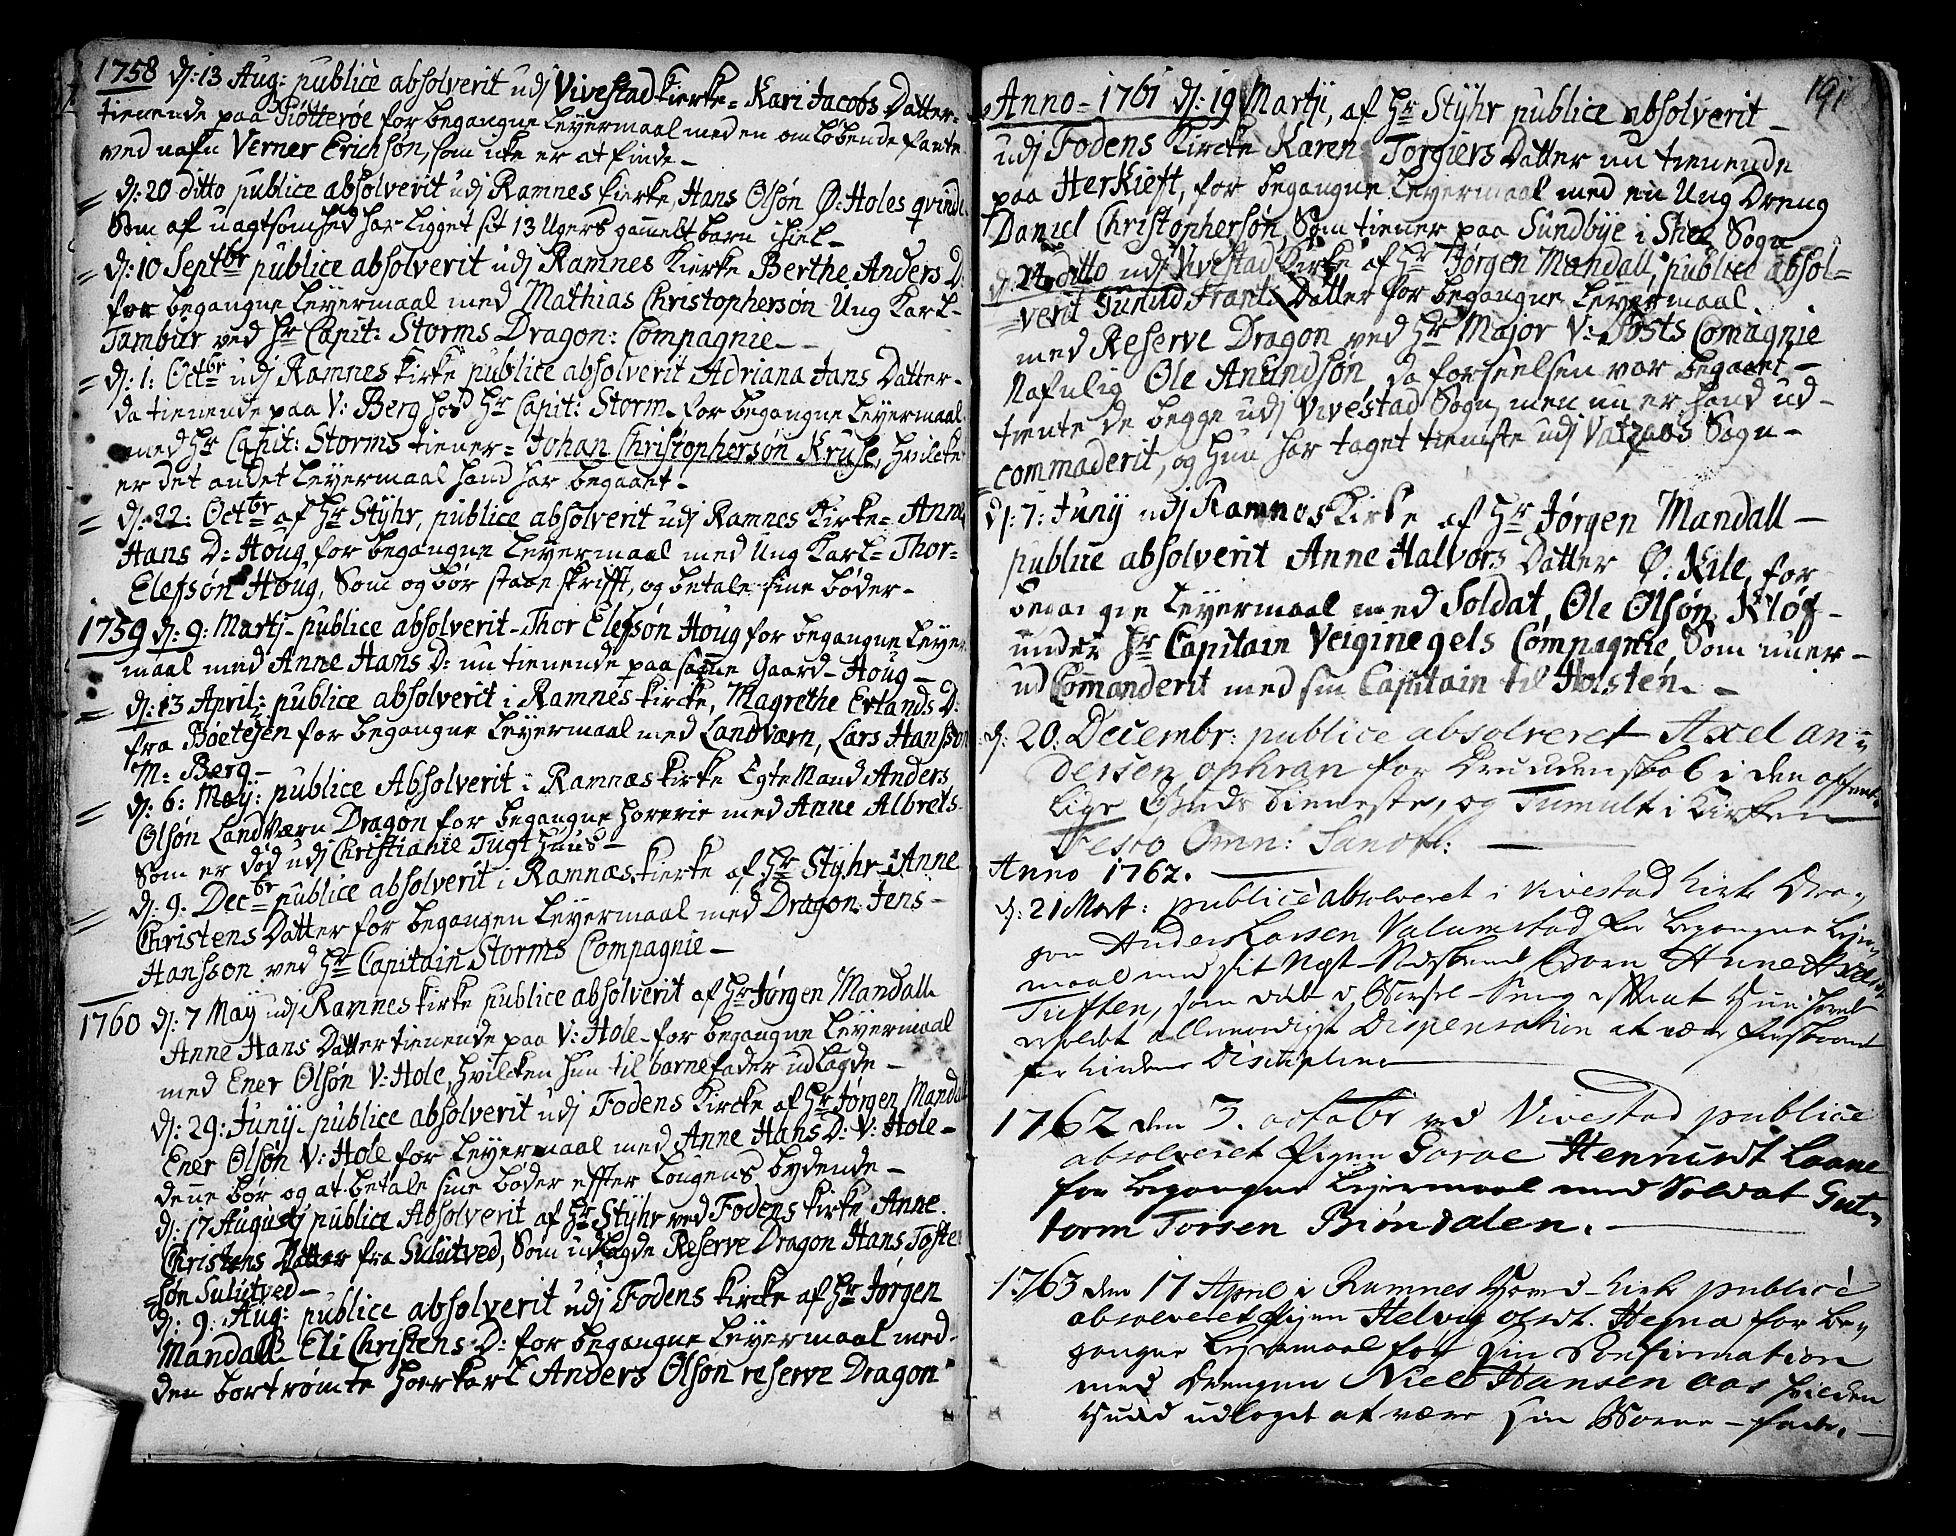 1758 d: 13 Aug: publice absolverit udj Vivestad kierke = Kari Jacobs Datter =
tienende paa Fiötteröe for begangne leyermaal med en omløbende fante
ved nafn Verner Erichsøn, som icke er at finde –
= d: 20 ditto publice absolverit udj Ramnes kierke, Hans Olsøn Ø: Holes qvinde
Som af uagtsomhed har ligget sit 13 Ugers gammelt barn ihiel –
= d: 10 Septbr publice absolverit udj Ramnes Kierke Berthe Anders D:
for begangne leyermaal med Mathias Christophersøn Ung Karl –
Tambur ved Hr Capit: Storms Dragon: Compagnie –
= d: 1: Octbr udj Ramnes kirke publice absolverit Adriana Jans Datter –
da tienende paa V: Berg hos Hr Capit: Storm for begangne leyermaal
med Hr Capit: Storms tiener = Johan Christophersøn Kruse, hvilcket
er det andet leyermaal hand har begaaet –
= d: 22: Octbr af Hr Styhr, publice absolverit udj Ramnes Kirke = Anne
Hans D: Houg for begangne leyermaal med Ung Karl = Thor =
Elefsøn Houg, Som og bør staae skrifft, og betale sine bøder –
1759 d: 9: Martj – publice absolverit – Thor Elefsøn Houg for begangne leyer
maal med Anne Hans D: nu tienende paa samme Gaard – Houg –
= d: 13 April: publice absolverit i Ramnes kircke, Magrethe Erlands D:
fra Bøetejen for begangne leyermaal med Landværn, Lars Hansson
M: Berg –
= d: 6: May: publice Absolverit i Ramnæs kirke Egte Mand Anders
Olsøn LandVærn Dragon for begangne horerie med Anne Albrets
Som er død udj Christianie Tugt huus –
= d: 9: Decbr publice absolverit i Ramnæs kierke af Hr Styhr – Anne
Christens Datter for begangen leyermaal med Dragon: Jens –
Hansson ved Hr Capitain Storms Compagnie –
1760 d: 7 May udj Ramnes kirke publice absolverit af Hr Jørgen Mandall
Anne Hans Datter tienende paa V: Hole – for begangne leyermaal
med Ener Olsøn V: Hole, hvilcken hun til barnefader udlagde –
d: 29: Junij – publice absolverit udj Fodens Kircke af Hr Jørgen Mandall
Ener Olsøn V: Hole for leyermaal med Anne Hans D: V: Hole –
denne bør og at betale sine bøder effter Lougens bydende –
d: 17 Augustj publice Absolverit af Hr Styhr ved Fodens kirke Anne
Christens Datter fra Sulutved, Som udlagde Reserve Dragon Hans Toste
søn Sulutved –
d: 9: Aug: publice absolverit udj Fodens kircke af Hr Jørgen
Mandall Eli Christens D: for begangne leyermaal med
den bortrømte hoerkarl Anders Olsøn reserve Dragon
191
Anno – 1761 d: 19 Martij, af Hr Styhr publice absolverit –
udj Fodens Kircke Karen Torgiers Datter nu tienende
paa Herkieft, for begangne leyermaal med en Ung Dreng
Daniel Christophersøn, Som tiener paa Sundbye i Shee Sogn
d: 24 ditto udj Vivestad Kirke af Hr Jørgen Mandall, publice absol =
verit Gunild Frants Datter for begangne leyermaal
med Reserve Dragon ved Hr Major V: Posts Comagnie
Nafnlig Ole Anundsøn, da forseelsen var begaaet –
tiente de begge udj Vivestad Sogn, men nu er hand ud –
commaderit, og hun har taget tieniste udj Vatzaas Sogn –
d: 7: Junij udj Ramnes Kirke af Hr Jørgen Mandall –
publice absolverit Anne Halvors Datter Ø: Kile, for
begangne leyermaal med Soldat, Ole Olsøn Kløf –
under Hr Capitain Veiginegels Compagnie, Som nu er –
ud Commanderit med sin Capitain til Holsten. –
d: 20: Decembr: publice absolveret Axel An =
dersen ophran for Druckenskab i den offent
lige Guds tieneste, og Tumult i Kirken
Festo Omn: Sanct: –
Anno 1762. –
d: 21 Mart: publice absolveret i Vivestad Kirke Dra =
gon Anders Larssen Valumstad for begangne leyer
maal med sit Næst – Sødskende Barn Anne
Tuften, som udi Barsel – Seng
allernaadigst Dispensation at være
for kirkens Disciplin –
1762 den 3. octobr ved Vivestad publice
absolveret Pigen Goroe Henrichsdt Laane
for begangne Leyermaal med Soldat Gut =
torm Torsen Brøndalen. –
1763 den 17 Apr: i Ramnes Hoved – Kirke publice
absolveret Pigen Helvig Olsdt. Hejna for be =
gangne Leyermaal før sin Confirmation
med Drengen Niels Hansen Aas hvilcken
hun udlagde at være sin Barne – fader. –